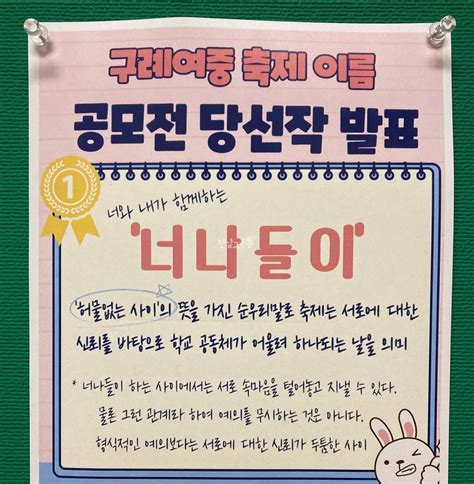 구례여중 축제 이름
공모전 당선작 발표
1
너와 내가 함께하는
'너나들이'
'허물없는 사이'의 뜻을 가진 순우리말로 축제는 서로에 대한
신뢰를 바탕으로 학교 공동체가 어울려 하나되는 날을 의미
* 너나들이 하는 사이에서는 서로 속마음을 털어놓고 지낼 수 있다.
물론 그런 관계라 하여 예의를 무시하는 것은 아니다.
형식적인 예의보다는 서로에 대한 신뢰가 두툼한 사이